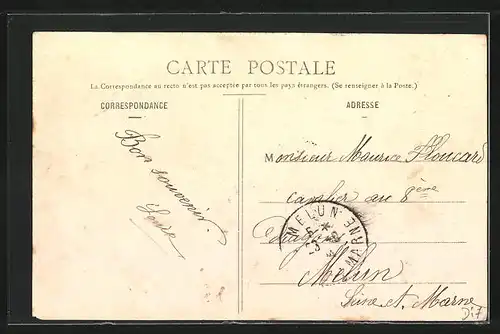 CARTE POSTALE
La Correspondance au recto n'est pas acceptée par tous les pays étrangers. (Se renseigner à la Poste.)
CORRESPONDANCE
ADRESSE
Bon souvenir.
Monsieur Maurice
cavalier au 8ème
Dragons
MELUN
MARNE
Melun
Seine et Marne